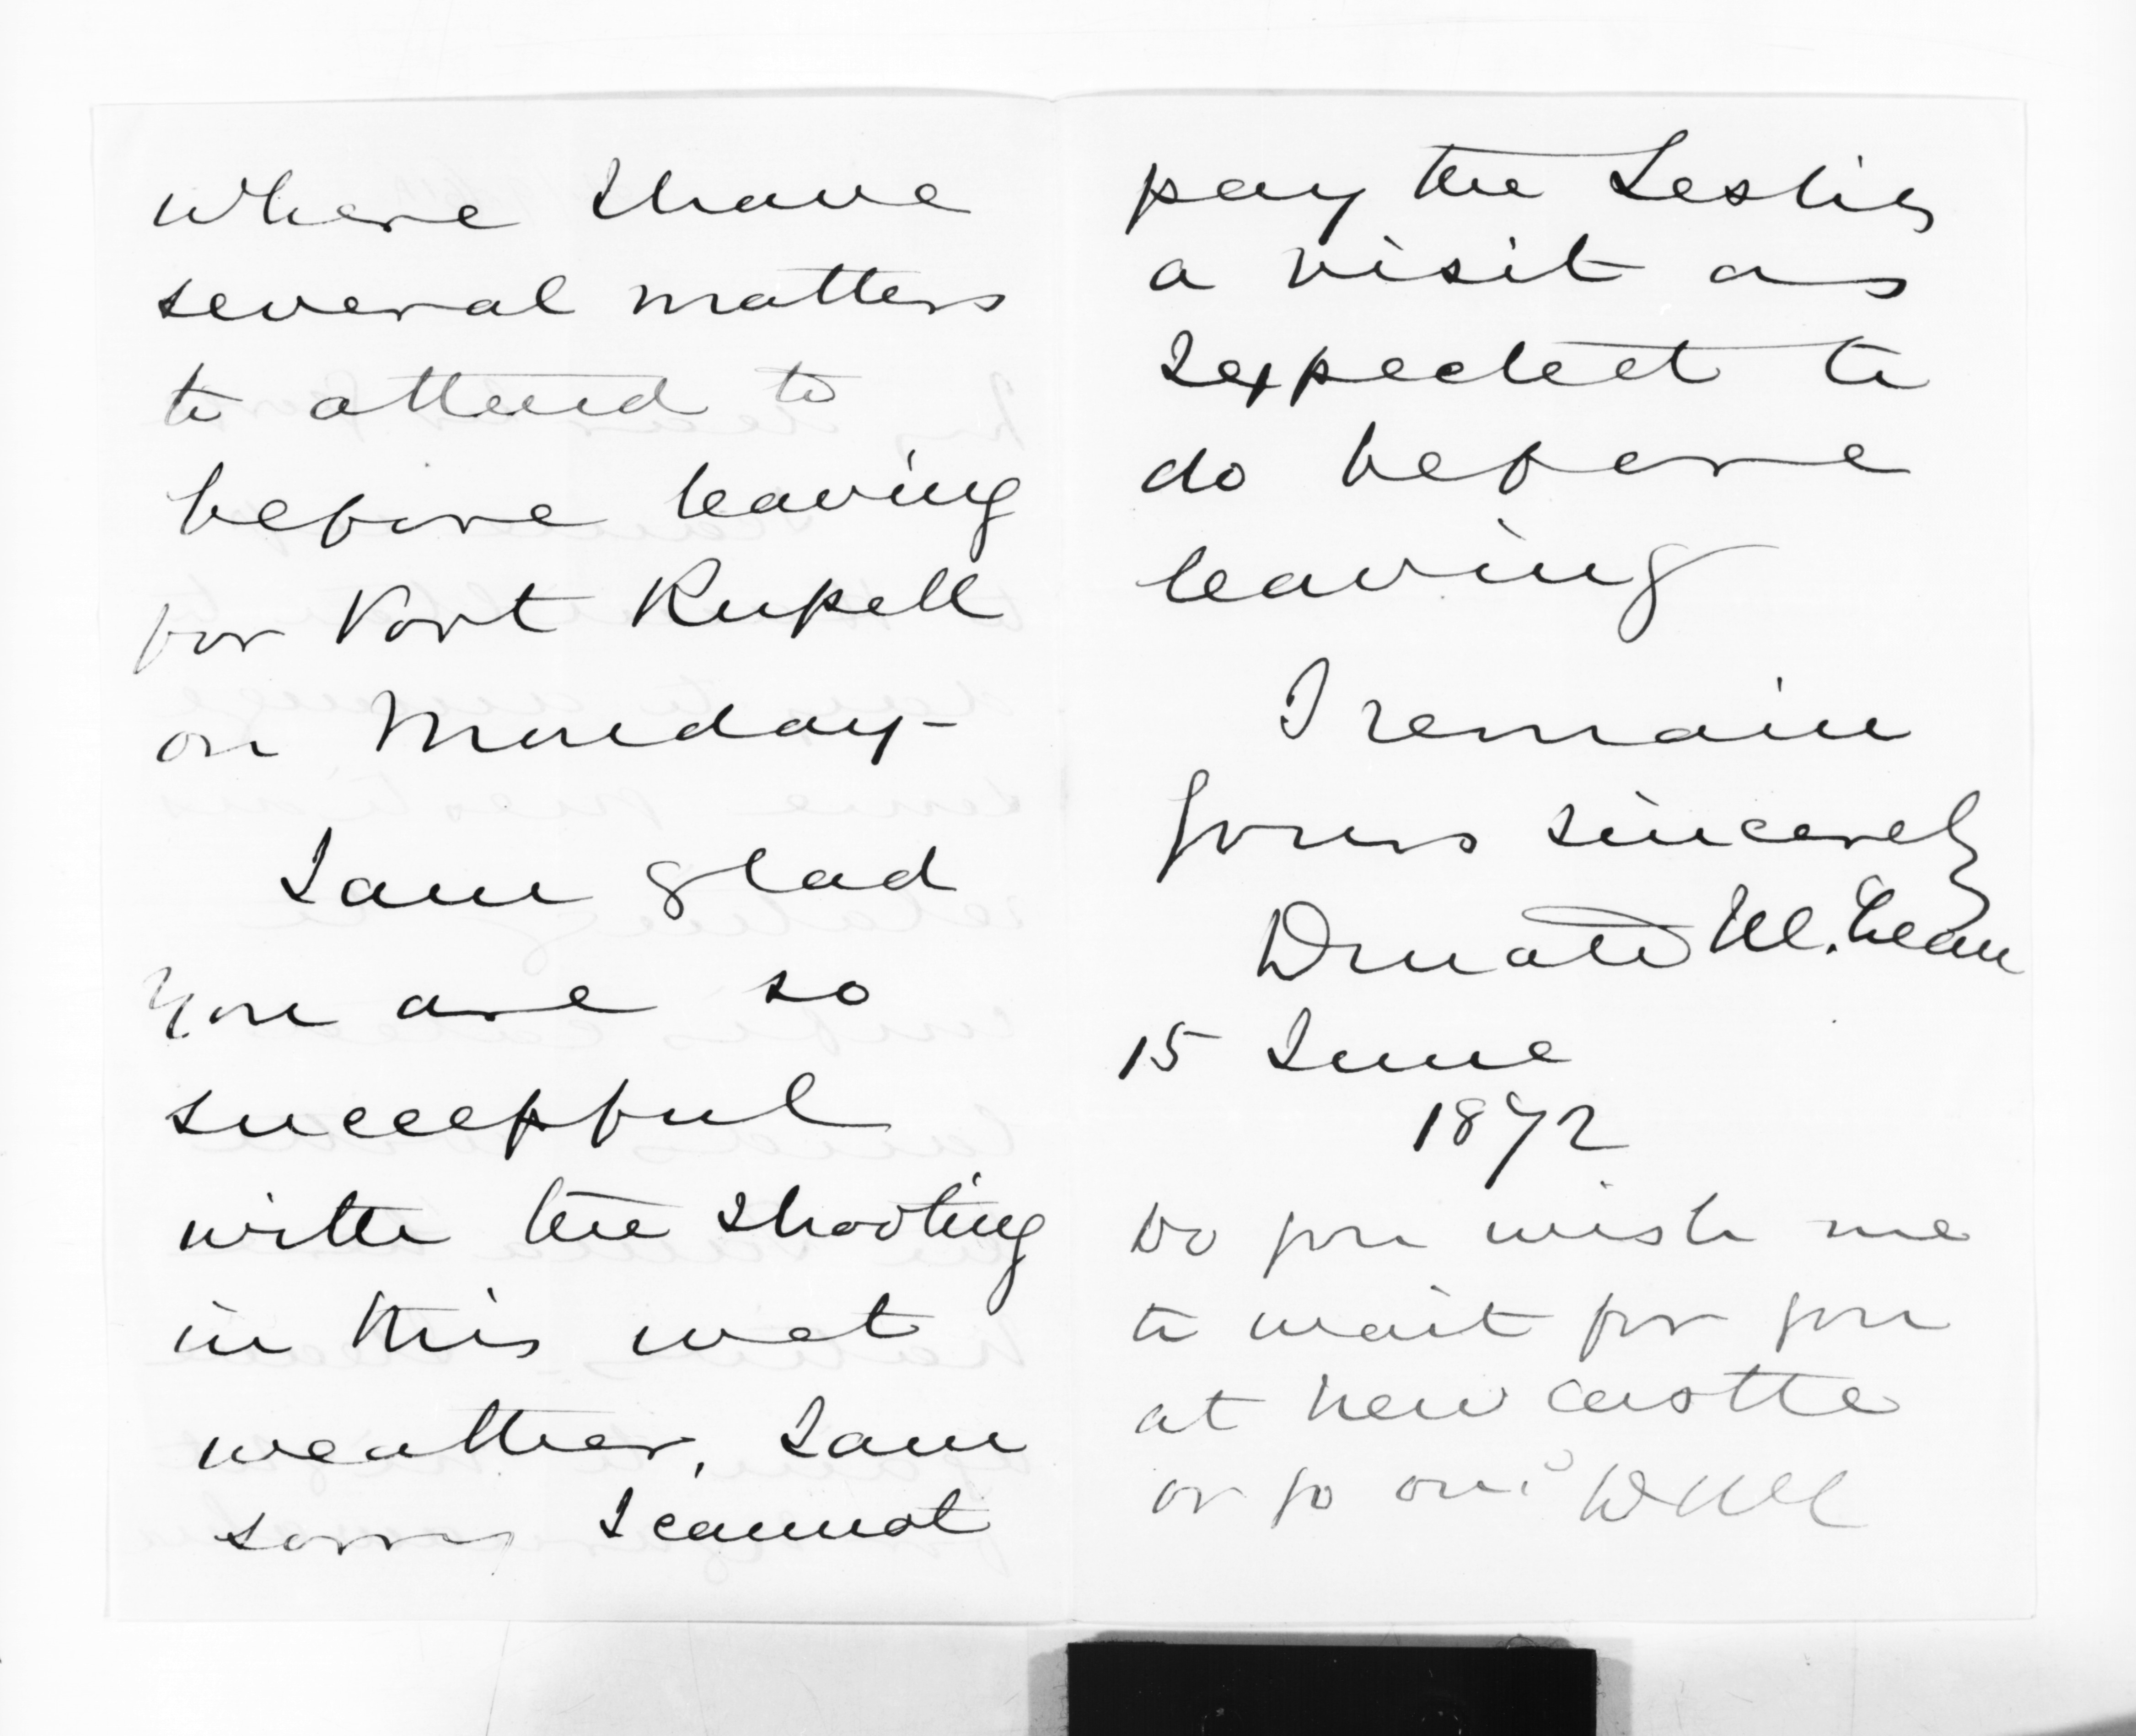 where I have
several matters
to attend to
before leaving
for Port Russell
on Monday -
I am glad
you are so
successful
with the shooting
in this wet
weather, I am
sorry I cannot
pay the Leslies
a visit as
I expected to
do before
leaving
I remain
yours sincerely
Donald McLean
15 June
1872
Do you wish me
to wait for you
at Newcastle
or go on? DMcL